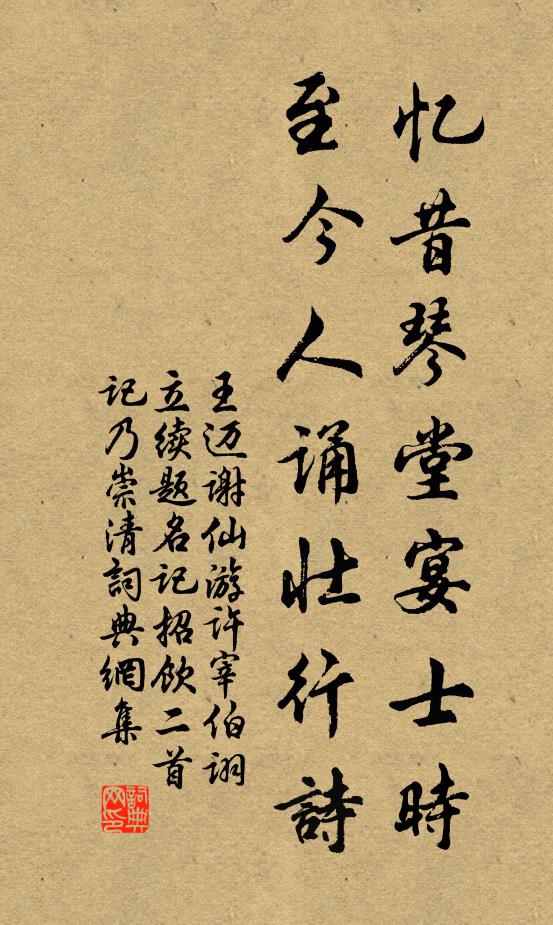 忆昔琴堂宴士時
至今人诵壮行詩
王迈谢仙游许宰伯诩
立续题名记招饮二首
记乃崇清詞典網集
詞典網印